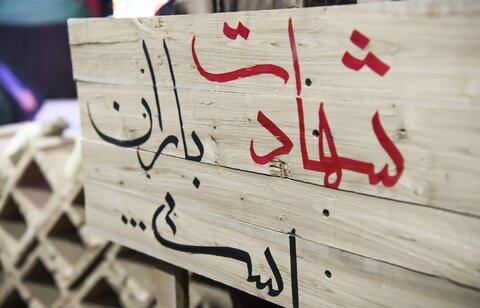 شهادت
باران
است...